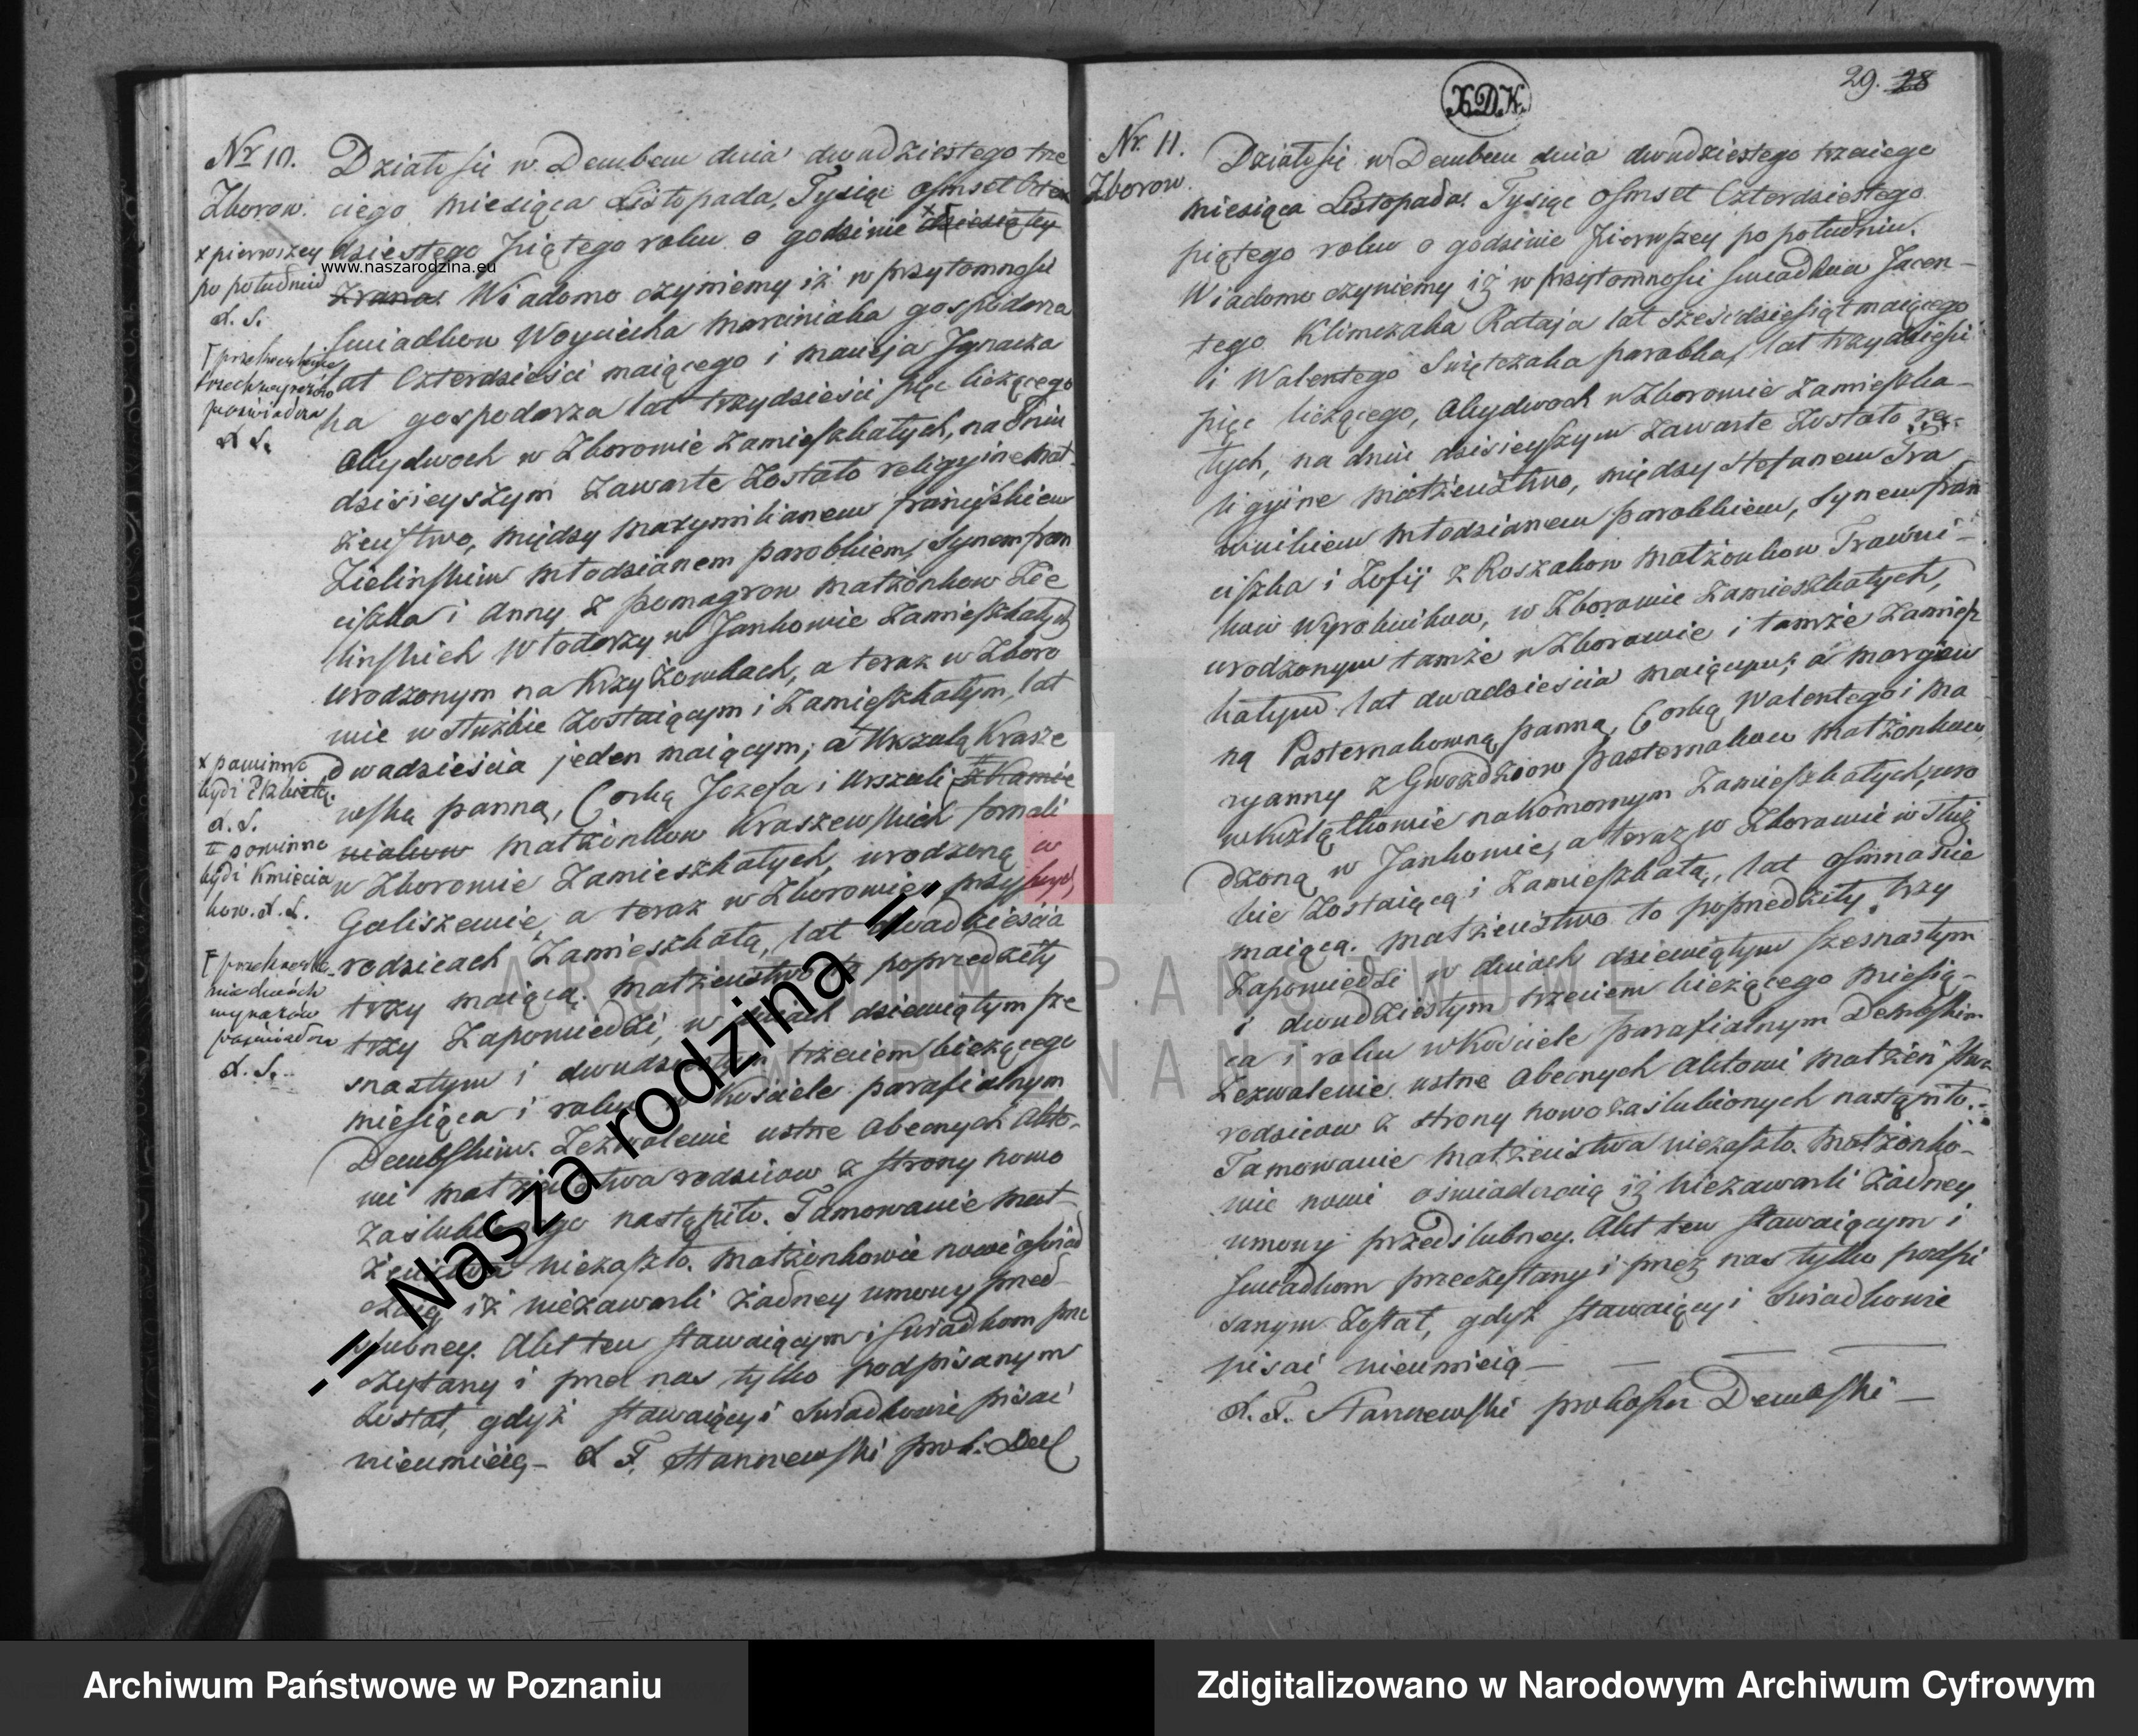 Nr 10.
Zborow.
x pierwszey
po południu
X. S.
Γ przekreślenie
trzech wyrazów
poświadcza
X S.
x powinno
bydź Elżbietą.
X. S.
powinno
bydź Kmiecia
kow. X. S.
Γ przekreśle-
nie dwóch
wyrazów
poświadcza
X. S.
Działo się w Dembem dnia dwudziestego trze
ciego miesiąca Listopada, Tysiąc osmset Czter
dziestego piątego roku o godzinie dziesiątey
zrana. Wiadomo czyniemy iż w przytomności
świadkow Woyciecha Marciniaka gospodarza
lat Czterdzieści maiącego i Ignacza
ka gospodarza lat trzydzieści pięc liczącego
Obydwoch w Zborowie zamieszkałych, na dniu
dzisieyszym zawarte zostało religyine mał-
żeństwo, między Maxymilianem
Zielinskim młodzianem parobkiem, synem Fran
ciszka i Anny z małżonkow Zie
linskich Włodarzy w Jankowie zamieszkałych
urodzonym na a teraz w Zboro
wie w służbie zostaiącym i zamieszkałym, lat
dwadzieścia jeden maiącym; a Urszulą Krasze
wską panną, Corką Jozefa i Urszuli z Kamie
niakow małżonkow Kraszewskich fornali
w Zborowie zamieszkałych, urodzoną w
Galiszewie, a teraz w Zborowie przy
rodzicach zamieszkałą, lat dwadzieścia
trzy maiącą. Małżeństwo to poprzedziły
trzy zapowiedzi, w dniach dziewiątym sze
snastym i dwudziestym trzeciem bieżącego
miesiąca i roku w Kościele parafialnym
Dembskim. Zezwolenie ustne obecnych Akto-
wi małżeństwa rodzicow z strony nowo
zaślubionego nastąpiło. Tamowanie mał-
żeństwa niezaszło. Małżonkowie nowi oświad
czaią iż niezawarli żadney umowy przed
ślubney. Akt ten stawaiącym i świadkom prze
czytany i przez nas tylko podpisanym
został, gdyż stawaiący i świadkowie pisać
nieumieią - X F. Stanczewski prob. Demb
29. 28
K.D.K.
Nr. 11.
Zborow.
Działo się w Dembem dnia dwudziestego trzeciego
miesiąca Listopada, Tysiąc osmset Czterdziestego
piątego roku o godzinie pierwszey po południu.
Wiadomo czyniemy iż w przytomności świadków Jacen-
tego Klimczaka Rataja lat sześćdziesiąt maiącego
i Walentego Swiętczaka parobka, lat trzydzieści
pięc liczącego, Obydwoch w Zborowie zamieszka-
łych, na dniu dzisieyszym zawarte zostało re-
ligyine małżeństwo, między Stefanem Tra
wnikiem młodzianem parobkiem, Synem Fran
ciszka i Zofiy z Roszakow małżonkow Trawni-
kow Wyrobnikow, w Zborowie zamieszkałych,
urodzonym tamże w Zborowie i tamże zamiesz
kałym lat dwadzieścia maiącym; a Maryan
ną Pasternakowną panną, Corką Walentego i Ma
ryanny z Gwozdziow Pasternakow małżonkow,
w na Komornym zamieszkałych, uro
dzoną w Jankowie, a teraz w Zborowie w służ
bie zostaiącą i zamieszkałą, lat osmnaście
maiącą. Małżeństwo to poprzedziły trzy
zapowiedzi w dniach dziewiątym szesnastym
i dwudziestym trzeciem bieżącego miesią-
ca i roku w Kościele parafialnym Dembskim
Zezwolenie ustne obecnych Aktowi małżeństwa
rodzicow z strony nowo zaślubionych nastąpiło.
Tamowanie małżeństwa niezaszło. Małżonko-
wie nowi oświadczaią iż niezawarli żadney
umowy przedślubney. Akt ten stawaiącym i
świadkom przeczytany i przez nas tylko podpi
sanym został, gdyż stawaiący i świadkowie
pisać nieumieią -
X. F. Stanczewski proboszcz Dembski -
www.naszarodzina.eu
.:= Nasza rodzina =:.
ARCHIWUM PAŃSTWOWE
W POZNANIU
Archiwum Państwowe w Poznaniu
Zdigitalizowano w Narodowym Archiwum Cyfrowym